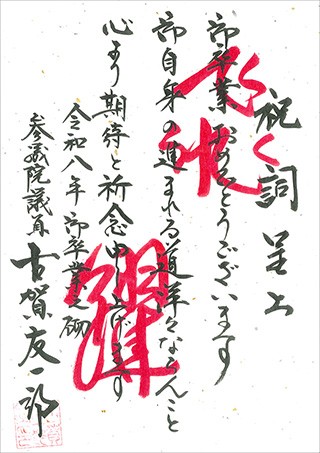 祝詞 呈上
御卒業おめでとうございます
御自身の進まれる道洋々ならんこと
心より期待と祈念申し上げます
令和八年 御卒業之砌
参議院議員 古賀友一郎
飛躍